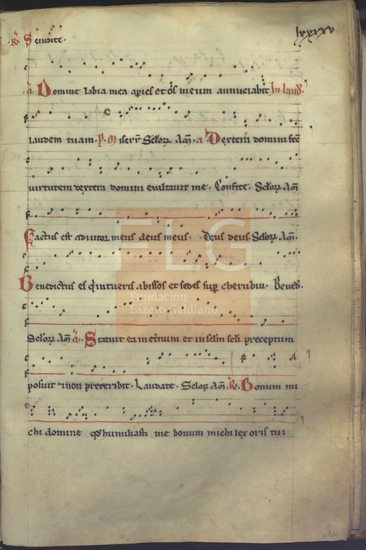 lxxxv
℟. Seruite.
a Domine labia mea apies et os meum annuciabit In laud.
laudem tuam. ps Miserere Seculorum Am. a Dextera domini fec
uirtutem dextera domini exaltauit me. Confite. Seculorum Am
Factus est adiutor meus deus meus. Deus deus Seculorum Am.
Benedictus es qi intueris abissos et sedes sup cherubin. Bened.
Seculorum Am a. Statuit ea in eternum et in seculum seculi preceptum
posuit et non preteribit. Laudate. Seculorum Am. ℟. Bonum mi
chi domine qd humiliasti me bonum michi lex oris tui
FLG
Fundación
Lázaro Galdiano